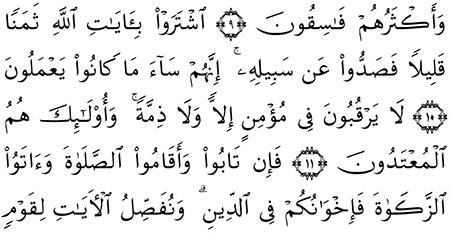 وَأَكْثَرُهُمْ فَـٰسِقُونَ ۝٩ ٱشْتَرَوْا۟ بِـَٔايَـٰتِ ٱللَّهِ ثَمَنًا
قَلِيلًا فَصَدُّوا۟ عَن سَبِيلِهِۦٓ ۚ إِنَّهُمْ سَآءَ مَا كَانُوا۟ يَعْمَلُونَ
۝١٥ لَا يَرْقُبُونَ فِى مُؤْمِنٍ إِلًّا وَلَا ذِمَّةً ۚ وَأُو۟لَـٰٓئِكَ هُمُ
ٱلْمُعْتَدُونَ ۝١١ فَإِن تَابُوا۟ وَأَقَامُوا۟ ٱلصَّلَوٰةَ وَءَاتَوُا۟
ٱلزَّكَوٰةَ فَإِخْوَٰنُكُمْ فِى ٱلدِّينِ ۗ وَنُفَصِّلُ ٱلْـَٔايَـٰتِ لِقَوْمٍ